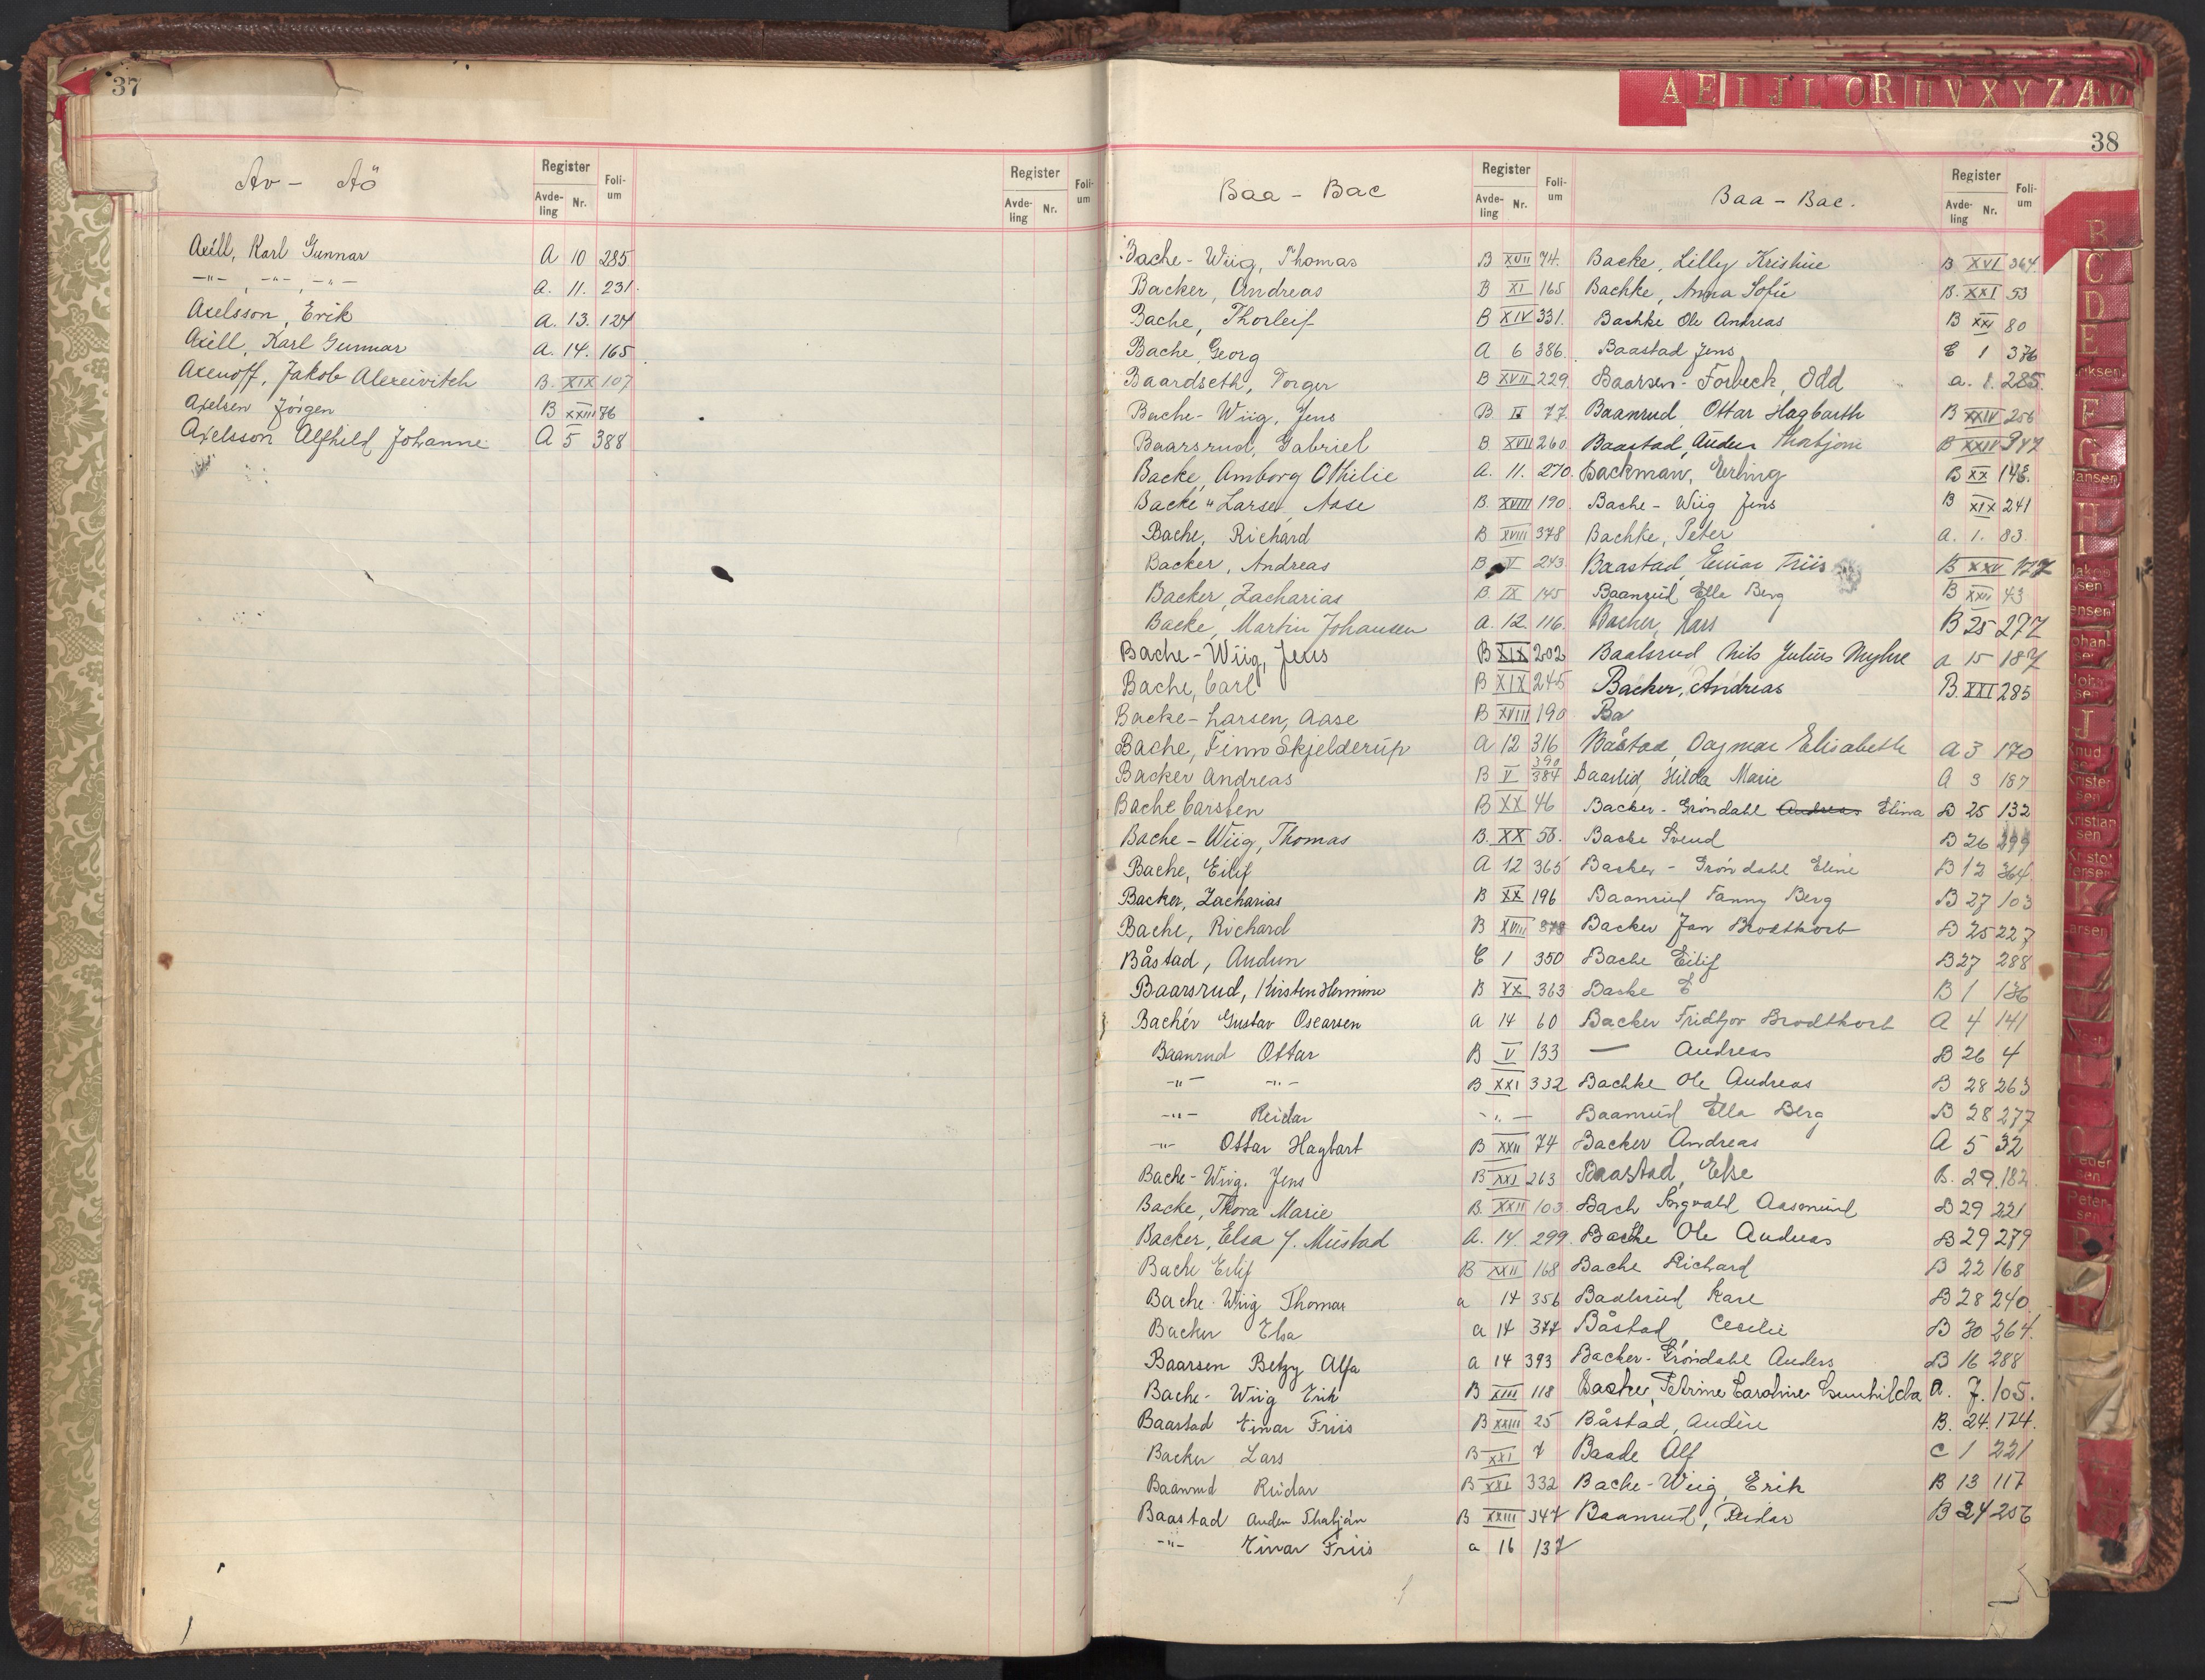 37
Av - Aö
Register
Avdeling Nr. Folium
Register
Avdeling Nr. Folium
Axill, Karl Gunnar A 10 285
-"- , -"- , -"- A. 11. 231.
Axelsson, Erik A. 13. 124
Axill, Karl Gunnar A. 14. 165
Axenoff, Jakob Alexeivitch B. XIX 107
Axelsen Jörgen B XXIII 76
Axelsson Alfhild Johanne A 5 388
A E I J L O R U V X Y Z Æ
38
Baa - Bac
Register
Avdeling Nr. Folium
Bache-Wiig, Thomas B XVII 74.
Backer, Andreas B XI 165
Bache, Thorleif B XIV 331.
Bache, Georg A 6 386.
Baardseth, Torger B XVII 229
Bache-Wiig, Jens B II 77
Baarsrud, Gabriel B XVII 260
Backe, Amborg Othilie A. 11. 270.
Backe " Larsen, Aase B. XVIII 190.
Bache, Richard B XVIII 378
Backer, Andreas B V 243
Backer, Zacharias B. IX 145
Backe, Martin Johansen A. 12. 116.
Bache-Wiig, Jens B XIX 202
Bache, Carl B XIX 245
Backe-Larsen, Aase B XVIII 190
Bache, Finn Skjelderup A 12 316
Backer Andreas B V 390 384
Bache Carsten B XX 46
Bache-Wiig, Thomas B. XX 58.
Bache, Eilif A 12 365
Backer, Zacharias B XX 196
Bache, Richard B XVIII 378
Båstad, Audun C 1 350
Baarsrud, Kirsten Hermine B XX 363
Bachér Gustav Oscarsen A 14 60
Baanrud Ottar B V 133
-"- -"- B XXI 332
-"- Reidar -"-
-"- Ottar Hagbart B XXII 74
Bache-Wiig. Jens B XXI 263
Backe, Thora Marie B. XXII 103.
Backer, Elsa f. Mustad A. 14. 299.
Bache Eilif B XXII 168
Bache-Wiig Thomas a 14 356
Backer Elsa a 14 377
Baarsen Betzy Alfa a 14 393
Bache-Wiig Erik B XIII 118
Baastad Einar Friis B XXIII 25
Backer Lars B XXI 7
Baanrud Reidar B XXI 332
Baastad Auden Thorbjørn B XXIII 347
-"- Einar Friis a 16 137
Baa - Bac.
Register
Avdeling Nr. Folium
Backe, Lilly Kristine B XVI 364.
Bachke, Anna Sofie B. XXI 53
Bachke Ole Andreas B XXI 80
Baastad Jens C 1 376
Baarsen-Forbeck, Odd a. 1. 285.
Baanrud Ottar Hagbarth B XXIV 256
Baastad, Auden Thorbjørn B XXIII 347
Backman, Erling B XX 148.
Bache-Wiig Jens B XIX 241
Bachke, Peter A. 1. 83.
Baastad, Einar Friis B XXV 177
Baanrud Ella Berg B XXII 43
Backer, Lars B 25 277
Baalsrud Nils Julius Myhre a 15 187
Backer, Andreas B. XXI 285
Ba
Båstad, Dagmar Elisabeth A 3 170
Baaslid, Hilda Marie A 3 187
Backer-Gröndahl Andreas Elina B 25 132
Backe Svend B 26 299
Backer-Gröndahl Eline B 12 364
Baanrud Fanny Berg B 27 103
Backer Jan Brodtkorb B 25 227
Bache Eilif B 27 288
Backe E B 1 136
Backer Fridtjov Brodtkorb A 4 141
— Andreas B 26 4
Bachke Ole Andreas B 28 263
Baanrud Ella Berg B 28 277
Backer Andreas A 5 32
Baastad, Else B. 29. 182
Bach Ingvald Aasmund B 29 221
Bachke Ole Andreas B 29 279
Bache Richard B 22 168
Baalsrud Kare B 28 240.
Båstad, Cecilie B 30 264.
Backer-Gröndahl Anders B 16 288
Backer, Petrine Caroline Gunhilda A. 7. 105.
Båstad, Auden B. 24. 174.
Baade Alf C 1 221
Bache-Wiig, Erik B 13 117
Baanrud, Reidar B 24 256
B
C
D
E
Eriksen
F
G
Hansen
H
I
Jakobsen
Jensen
Johansen
Johnsen
J
Knudsen
Kristensen
Kristiansen
Kristoffersen
K
Larsen
Pedersen
Petersen